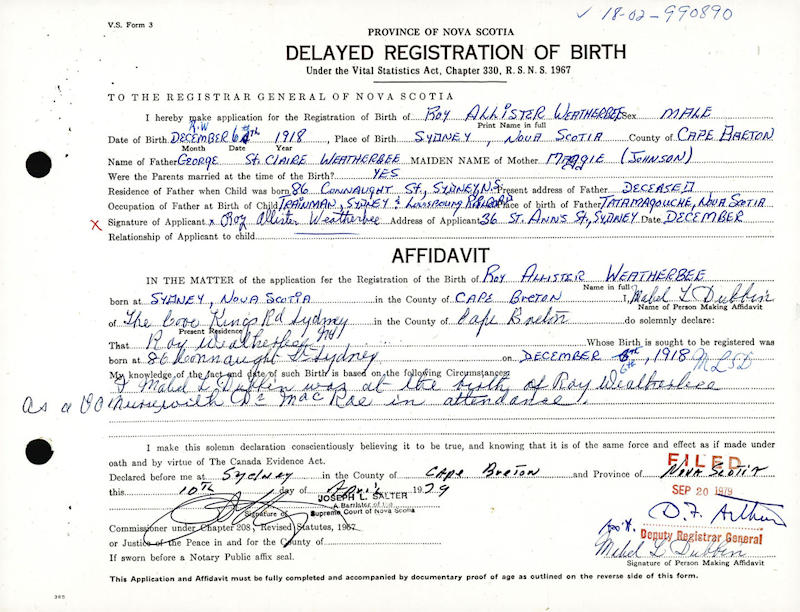 V.S. Form 3
✓ 18-02-990890
PROVINCE OF NOVA SCOTIA
DELAYED REGISTRATION OF BIRTH
Under the Vital Statistics Act, Chapter 330, R.S.N.S. 1967
TO THE REGISTRAR GENERAL OF NOVA SCOTIA
I hereby make application for the Registration of Birth of ROY ALLISTER WEATHERBEE Sex MALE
Print Name in full
R.W
Date of Birth DECEMBER 6th 1918, Place of Birth SYDNEY, NOVA SCOTIA County of CAPE BRETON
Month Date Year
Name of Father GEORGE St. CLAIRE WEATHERBEE MAIDEN NAME of Mother MAGGIE (JOHNSON)
Were the Parents married at the time of the Birth? YES
Residence of Father when Child was born 86 CONNAUGHT St, SYDNEY N.S. Present address of Father DECEASED
Occupation of Father at Birth of Child TRAINMAN, SYDNEY & Louisbourg RAILROAD Place of birth of Father TATAMAGOUCHE, NOVA SCOTIA
X Signature of Applicant x Roy Allister Weatherbee Address of Applicant 36 ST. ANNS St, SYDNEY Date DECEMBER
Relationship of Applicant to child
AFFIDAVIT
IN THE MATTER of the application for the Registration of the Birth of ROY ALLISTER WEATHERBEE
Name in full
born at SYDNEY, NOVA SCOTIA in the County of CAPE BRETON I, Mabel L Dubbin
Name of Person Making Affidavit
of The Cove Kings Rd Sydney in the County of Cape Breton do solemnly declare:
Present Residence
That Roy Weatherbee Whose Birth is sought to be registered was
born at 86 Connaught St Sydney on DECEMBER 6th, 1918 MLD
6th
My knowledge of the fact and date of such Birth is based on the following Circumstances
I Mabel L Dubbin was at the birth of Roy Weatherbee
as a VO nurse with Dr Mac Rae in attendance.
I make this solemn declaration conscientiously believing it to be true, and knowing that it is of the same force and effect as if made under
oath and by virtue of The Canada Evidence Act.
Declared before me at Sydney in the County of Cape Breton and Province of Nova Scotia
FILED
this 10th day of April 1979
SEP 20 1979
JOSEPH L. SALTER
A Barrister of the
Signature of Supreme Court of Nova Scotia
D.F. Arthur
Commissioner under Chapter 208, Revised Statutes, 1967
Deputy Registrar General
or Justice of the Peace in and for the County of
Mabel L Dubbin
If sworn before a Notary Public affix seal.
Signature of Person Making Affidavit
This Application and Affidavit must be fully completed and accompanied by documentary proof of age as outlined on the reverse side of this form.